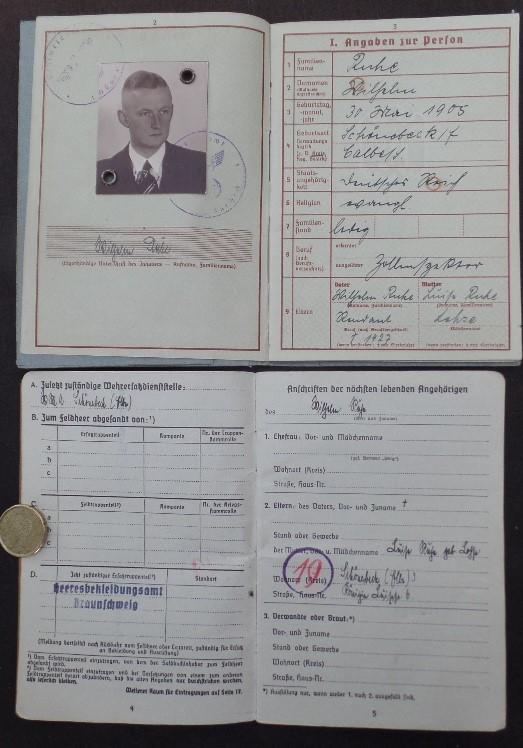 2
3
I. Angaben zur Person
1 Familien-
name
Ruhe
2 Vornamen
Wilhelm
3 Geburtstag,
-monat,
-jahr
30 Mai 1905
4 Geburtsort
Schönebeck/
Calbe/S.
5 Staats-
angehörig-
keit
Deutsches Reich
6 Religion
evangl.
7 Familien-
stand
ledig
8 Beruf
erlernter
ausgeübter
Zollinspektor
Wilhelm Ruhe
(Eigenhändige Unterschrift des Inhabers — Rufname, Familienname)
9 Eltern
Vater
Mutter
Wilhelm Ruhe
Luise Ruhe
(Rufname, Familienname)
Rendant
† 1927
A. Zuletzt zuständige Wehrersatzdienststelle:
Schönebeck (Elbe)
B. Zum Feldheer abgesandt von:¹)
Ersatztruppenteil
Kompanie
Nr. der Truppen-
stammrolle
a
b
c
C.
Feldtruppenteil²)
Kompanie
Nr. der Kriegs-
stammrolle
a
c
D.
Jetzt zuständiger Ersatztruppenteil²)
Standort
Heeresbekleidungsamt
Braunschweig
(Meldung dortselbst nach Rückkehr vom Feldheer oder Lazarett, zuständig für Ersatz
an Bekleidung und Ausrüstung)
¹) Vom Ersatztruppenteil einzutragen, von dem der Soldbuchinhaber zum Feldheer
abgesandt wird.
alle leserlich bleiben.
Weiterer Raum für Eintragungen auf Seite 17.
4
Anschriften der nächsten lebenden Angehörigen
des Wilhelm Ruhe
(Vor- und Zuname)
1. Ehefrau: Vor- und Mädchenname
(ggf. Vermerk „ledig")
Wohnort (Kreis)
Straße, Haus-Nr.
2. Eltern: des Vaters, Vor- und Zuname †
Stand oder Gewerbe
der Mutter, Vor- u. Mädchenname Luise Ruhe geb.
19
Wohnort (Kreis) Schönebeck (Elbe)
Straße, Haus-Nr. 6
3. Verwandte oder Braut:*)
Vor- und Zuname
Stand oder Gewerbe
Wohnort (Kreis)
Straße, Haus-Nr.
*) Ausfüllung nur, wenn weder 1. noch 2. ausgefüllt sind.
5